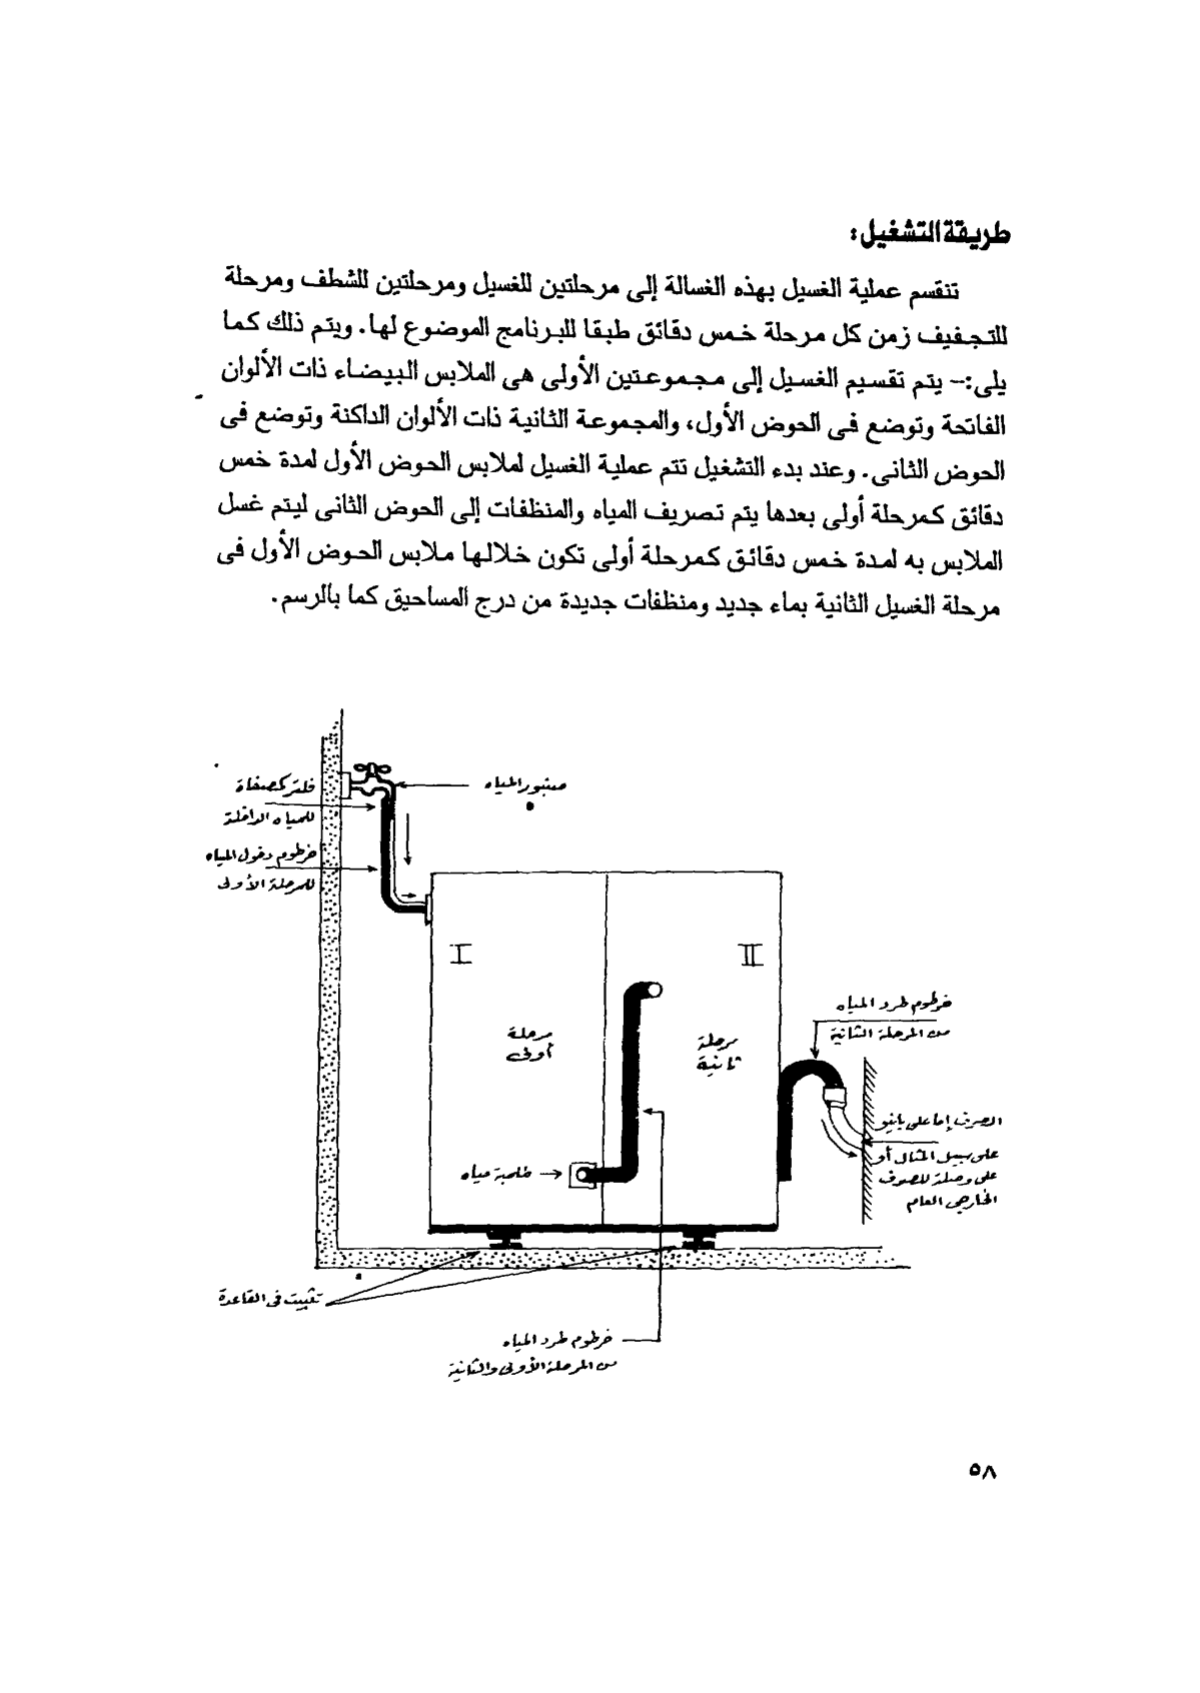 طريقة التشغيل:
تنقسم عملية الغسيل بهذه الغسالة إلى مرحلتين للغسيل ومرحلتين للشطف ومرحلة
للتجفيف زمن كل مرحلة خمس دقائق طبقا للبرنامج الموضوع لها. ويتم ذلك كما
يلى:- يتم تقسيم الغسيل إلى مجموعتين الأولى هى الملابس البيضاء ذات الألوان
الفاتحة وتوضع فى الحوض الأول، والمجموعة الثانية ذات الألوان الداكنة وتوضع فى
الحوض الثانى. وعند بدء التشغيل تتم عملية الغسيل لملابس الحوض الأول لمدة خمس
دقائق كمرحلة أولى بعدها يتم تصريف المياه والمنظفات إلى الحوض الثانى ليتم غسل
الملابس به لمدة خمس دقائق كمرحلة أولى تكون خلالها ملابس الحوض الأول فى
مرحلة الغسيل الثانية بماء جديد ومنظفات جديدة من درج المساحيق كما بالرسم.
صنبور المياه
فلتر كمصفاة
للمياه الداخلة
خرطوم دخول المياه
للمرحلة الأولى
I
II
مرحلة
أولى
مرحلة
ثانية
خرطوم طرد المياه
من المرحلة الثانية
الصرف إما على بانيو
على سبيل المثال أو
على وصلة للصرف
الخارجى العام
طلمبة مياه
تثبيت فى القاعدة
خرطوم طرد المياه
من المرحلة الأولى والثانية
٥٨